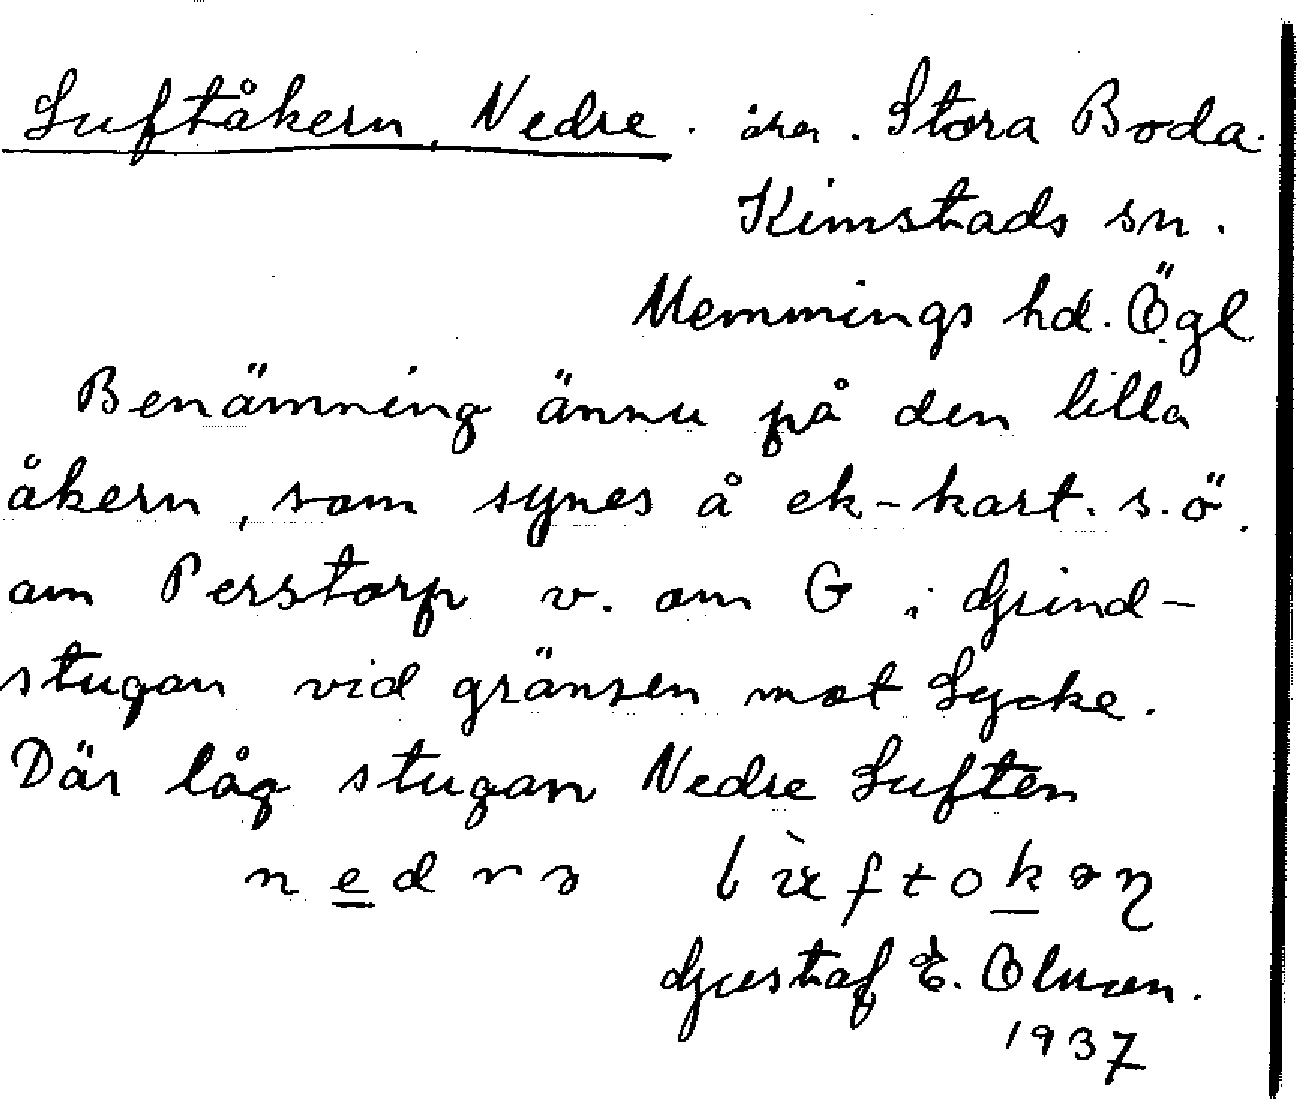 Luftåkern, Nedre. åker. Stora Boda.
Kimstads sn.
Memmings hd. Ögl
Benämning ännu på den lilla
åkern, som synes å ek-kart. s.ö.
om Perstorp v. om G i Grind-
stugan vid gränsen mot Lycke.
Där låg stugan Nedre Luften
nedrə
Gustaf E.
1937